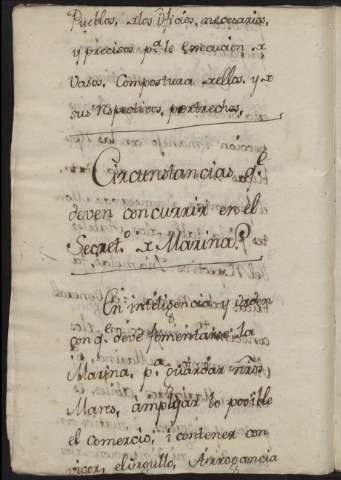 Pueblos, x los Oficios, necesarios,
y precisos p.a la Execucion x
Vasos, Compostura xellos, y x
sus Rspectivos, pertrechos,
Circunstancias q.e
deven concurrir en el
Secret.o x Marina.
En inteligencia, y orden
con q.e deve fomentarse la
Marina, p.a guardar nr̃os
Mares, ampliar lo posible
el Comercio, i contener con
vigor, el orgullo, Arrogancia